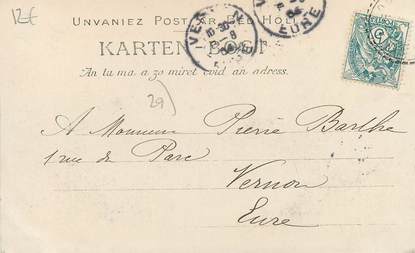 12€
UNVANIEZ POST AR BED HOLL
KARTEN POST
An tu ma a zo miret evid an adress.
EURE
29
A Monsieur Pierre Barthe
1 rue de Parc
Vernon
Eure